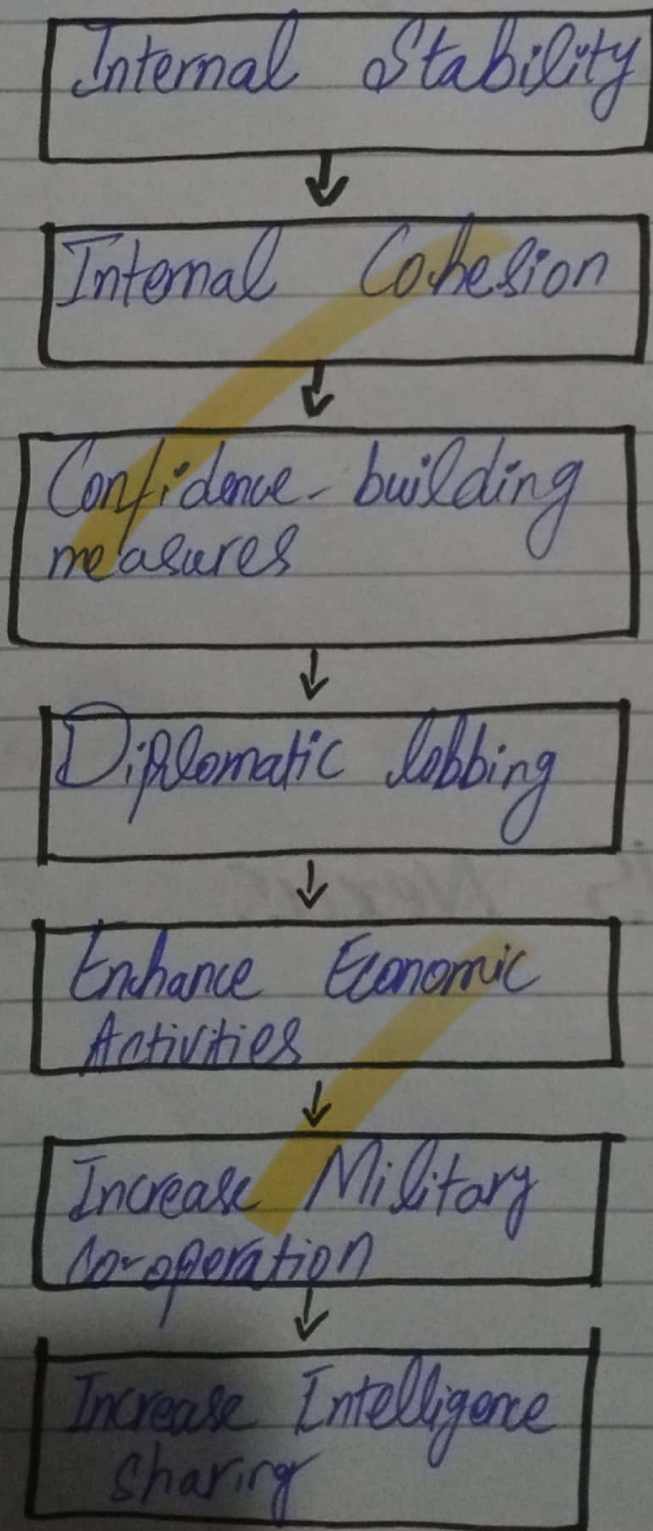 Internal Stability
Internal Cohesion
Confidence-building
measures
Diplomatic lobbing
Enhance Economic
Activities
Increase Military
co-operation
Increase Intelligence
sharing